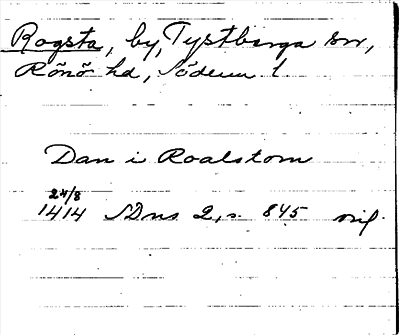 Rogsta, by, Tystberga sn,
Rönö hd, Söderm l.
Dan i Roalstom
24/8
1414 SDns 2, s. 845 orig.